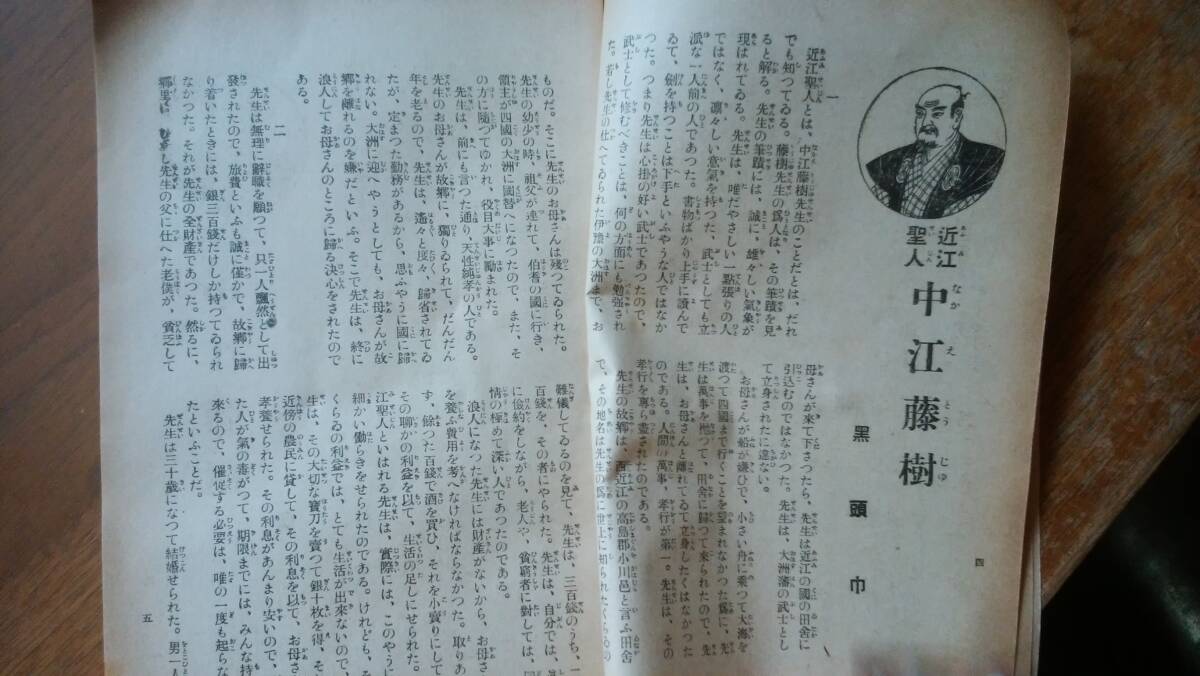 近江
聖人
中江藤樹
黑頭巾
一
近江聖人とは、中江藤樹先生のことだとは、だれ
でも知つてゐる。藤樹先生の爲人は、その筆蹟を見
ると解る。先生の筆蹟には、誠に、雄々しい氣象が
現はれてゐる。先生は、唯だやさしい一點張りの人
ではなく、凛々しい意氣を持つた、武士としても立
派な一人前の人であつた。書物ばかり上手に讀んで
ゐて、劍を持つことは下手といふやうな人ではなか
つた。つまり先生は心掛の好い武士であつたので、
武士として修むべきことは、何の方面にも勉强され
た。若し先生の仕へてゐられた伊豫の大洲まで、お
母さんが來て下さつたら、先生は近江の國の田舍に
引込むのではなかつた。先生は、大洲藩の武士とし
て立身されたに違ない。
お母さんが船が嫌ひで、小さい舟に乘つて大海を
渡つて四國まで行くことを望まれなかつた爲に、先
生は萬事を抛つて、田舍に歸つて來られたので、先
生は、お母さんと離れてゐて立身したくはなかつた
のである。人間の萬事、孝行が第一。先生は、その
孝行を專ら盡されたのである。
先生の故鄕は、西近江の高島郡小川邑と言ふ田舍
で、その地名は先生の爲に世上に知られたくらゐの
四
ものだ。そこに先生のお母さんは殘つてゐられた。
先生の幼少の時、祖父が連れて、伯耆の國に行き、
領主が四國の大洲に國替へになつたので、また、そ
の方に隨つてゆかれ、役目大事に勵まれた。
先生は、前にも言つた通り、天性純孝の人である。
先生のお母さんが故鄕に、獨りゐられて、だんだん
年を老るので、先生は、遙々と度々、歸省されてゐ
たが、定まつた勤務があるから、思ふやうに國に歸
れない。大洲に迎へやうとしても、お母さんが故
鄕を離れるのを嫌だといふ。そこで先生は、終に
浪人してお母さんのところに歸る決心をされたので
ある。
二
先生は無理に辭職を願つて、只一人飄然として出
發されたので、旅費といふも誠に僅かで、故鄕に歸
り着いたときには、銀三百錢だけしか持つてゐられ
なかつた。それが先生の全財產であつた。然るに、
鄕里に、先生の父に仕へた老僕が、貧乏して
難儀してゐるのを見て、先生は、三百錢のうち、
百錢を、その者にやられた。先生は、自分では、
に儉約をしながら、老人や、貧窮者に對しては、
情の極めて深い人であつたのである。
浪人になつた先生には財產がないから、お母さ
を養ふ費用を考へなければならなかつた。取りあ
す、餘つた百錢で酒を買ひ、それを小賣りにして
その聊かの利益を以て、生活の足しにせられた。
江聖人といはれる先生は、實際には、このやうに
細かい働らきをせられたのである。けれども、
くらゐの利益では、とても生活が出來ないので、
生は、その大切な寶刀を賣つて銀十枚を得、そ
近傍の農民に貸して、その利息を以て、お母さ
孝養せられた。その利息があんまり安いので、
た人が氣の毒がつて、期限までには、みんな持
來るので、催促する必要は、唯の一度も起らな
たといふことだ。
先生は三十歲になつて結婚せられた。男一人
五